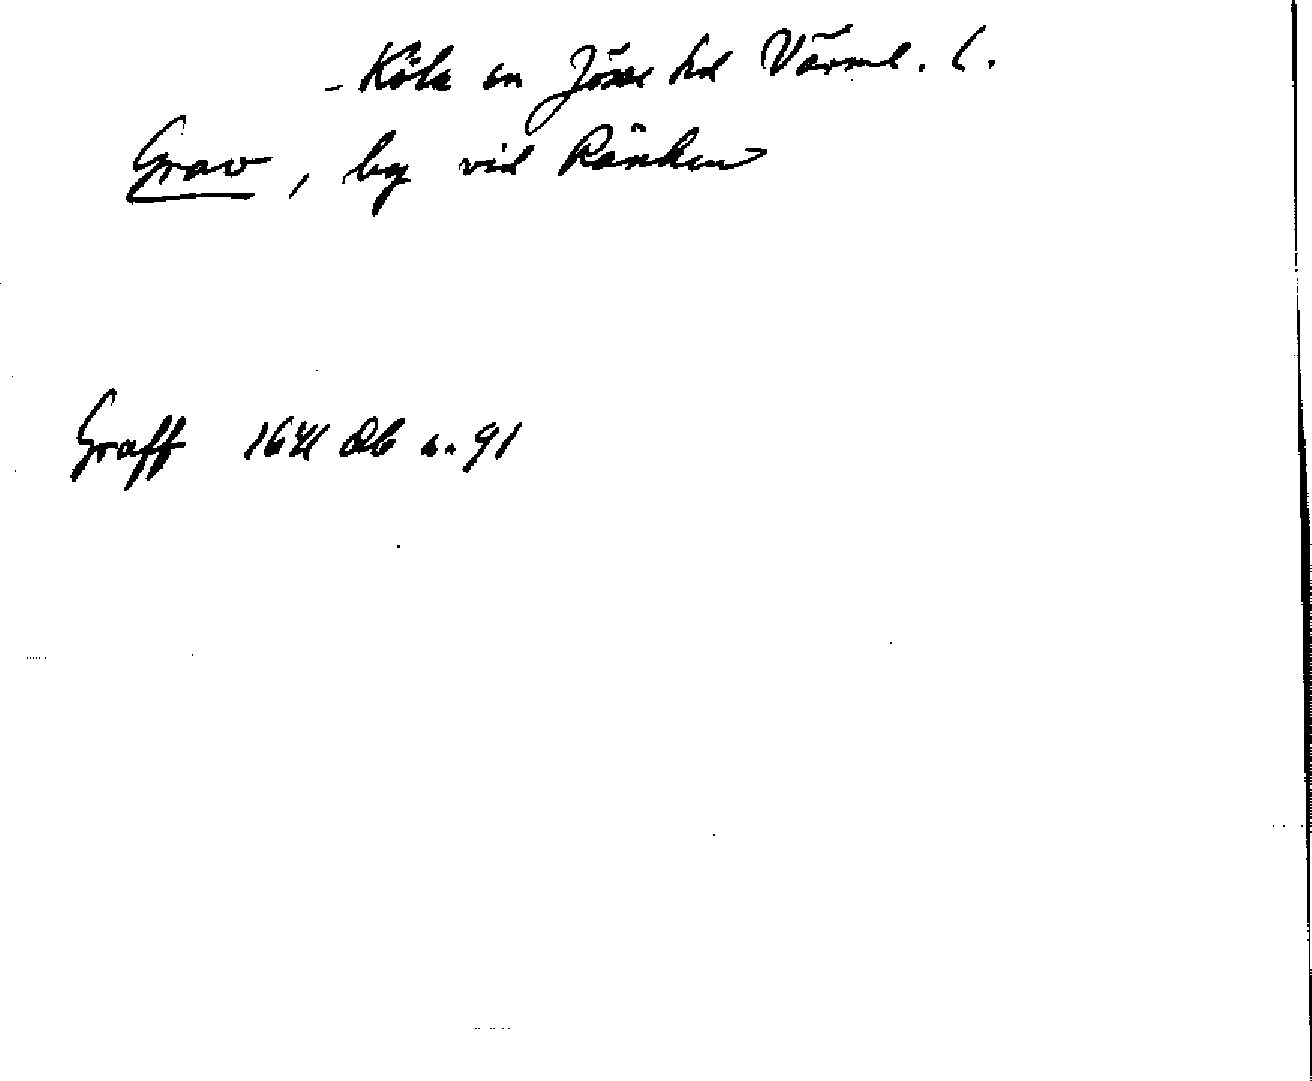 - Köla sn Jösse hd Värml. l.
Grav, by vid Ränken
Graff 1641 Db s. 91